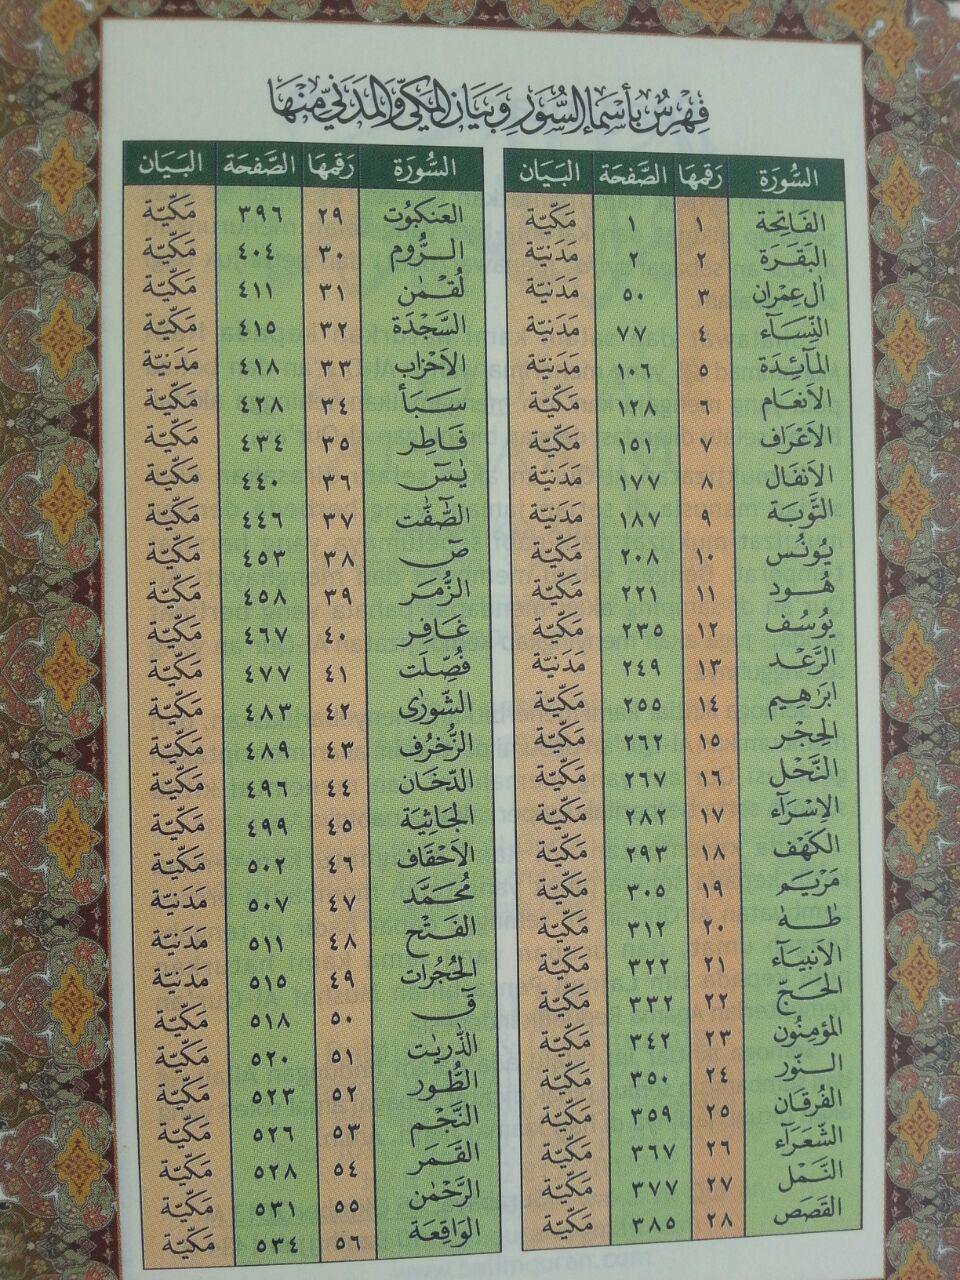 فِهْرِسُ بِأَسْمَاءِ السُّوَرِ وَبَيَانِ الْمَكِّيِّ وَالْمَدَنِيِّ مِنْهَا
السُّورَة رَقمهَا الصَّفحَة البَيَان
الفَاتِحَة ١ ١ مَكيّة
البَقَرَة ٢ ٢ مَدَنيّة
اٰل عِمْرَان ٣ ٥٠ مَدَنيّة
النِّسَآء ٤ ٧٧ مَدَنيّة
المَآئِدَة ٥ ١٠٦ مَدَنيّة
الاَنعَام ٦ ١٢٨ مَكيّة
الاَعْرَاف ٧ ١٥١ مَكيّة
الاَنفَال ٨ ١٧٧ مَدَنيّة
التَّوبَة ٩ ١٨٧ مَدَنيّة
يُونُس ١٠ ٢٠٨ مَكيّة
هُود ١١ ٢٢١ مَكيّة
يُوسُف ١٢ ٢٣٥ مَكيّة
الرَّعْد ١٣ ٢٤٩ مَدَنيّة
ابرَهِيم ١٤ ٢٥٥ مَكيّة
الحِجْر ١٥ ٢٦٢ مَكيّة
النَّحْل ١٦ ٢٦٧ مَكيّة
الاِسْرَآء ١٧ ٢٨٢ مَكيّة
الكَهْف ١٨ ٢٩٣ مَكيّة
مَرْيَم ١٩ ٣٠٥ مَكيّة
طٰهٰ ٢٠ ٣١٢ مَكيّة
الاَنبيَآء ٢١ ٣٢٢ مَكيّة
الحَجّ ٢٢ ٣٣٢ مَكيّة
المؤمِنُون ٢٣ ٣٤٢ مَكيّة
النّور ٢٤ ٣٥٠ مَكيّة
الفُرقَان ٢٥ ٣٥٩ مَكيّة
الشّعَرَآء ٢٦ ٣٦٧ مَكيّة
النَّمْل ٢٧ ٣٧٧ مَكيّة
القَصَص ٢٨ ٣٨٥ مَكيّة
السُّورَة رَقمهَا الصَّفحَة البَيَان
العَنكبُوت ٢٩ ٣٩٦ مَكيّة
الرُّوم ٣٠ ٤٠٤ مَكيّة
لُقمٰن ٣١ ٤١١ مَكيّة
السَّجْدَة ٣٢ ٤١٥ مَكيّة
الاَحْزَاب ٣٣ ٤١٨ مَدَنيّة
سَبَأ ٣٤ ٤٢٨ مَكيّة
فَاطِر ٣٥ ٤٣٤ مَكيّة
يٰسٓ ٣٦ ٤٤٠ مَكيّة
الصّٰٓفّٰت ٣٧ ٤٤٦ مَكيّة
صٓ ٣٨ ٤٥٣ مَكيّة
الزُّمَر ٣٩ ٤٥٨ مَكيّة
غَافِر ٤٠ ٤٦٧ مَكيّة
فُصِّلَت ٤١ ٤٧٧ مَكيّة
الشّورٰى ٤٢ ٤٨٣ مَكيّة
الزُّخرُف ٤٣ ٤٨٩ مَكيّة
الدّخَان ٤٤ ٤٩٦ مَكيّة
الجَاثِيَة ٤٥ ٤٩٩ مَكيّة
الاَحْقَاف ٤٦ ٥٠٢ مَكيّة
مُحَمَّد ٤٧ ٥٠٧ مَدَنيّة
الفَتْح ٤٨ ٥١١ مَدَنيّة
الحُجُرات ٤٩ ٥١٥ مَدَنيّة
قٓ ٥٠ ٥١٨ مَكيّة
الذّٰرِيٰت ٥١ ٥٢٠ مَكيّة
الطُّور ٥٢ ٥٢٣ مَكيّة
النَّجْم ٥٣ ٥٢٦ مَكيّة
القَمَر ٥٤ ٥٢٨ مَكيّة
الرَّحْمٰن ٥٥ ٥٣١ مَكيّة
الوَاقِعَة ٥٦ ٥٣٤ مَكيّة